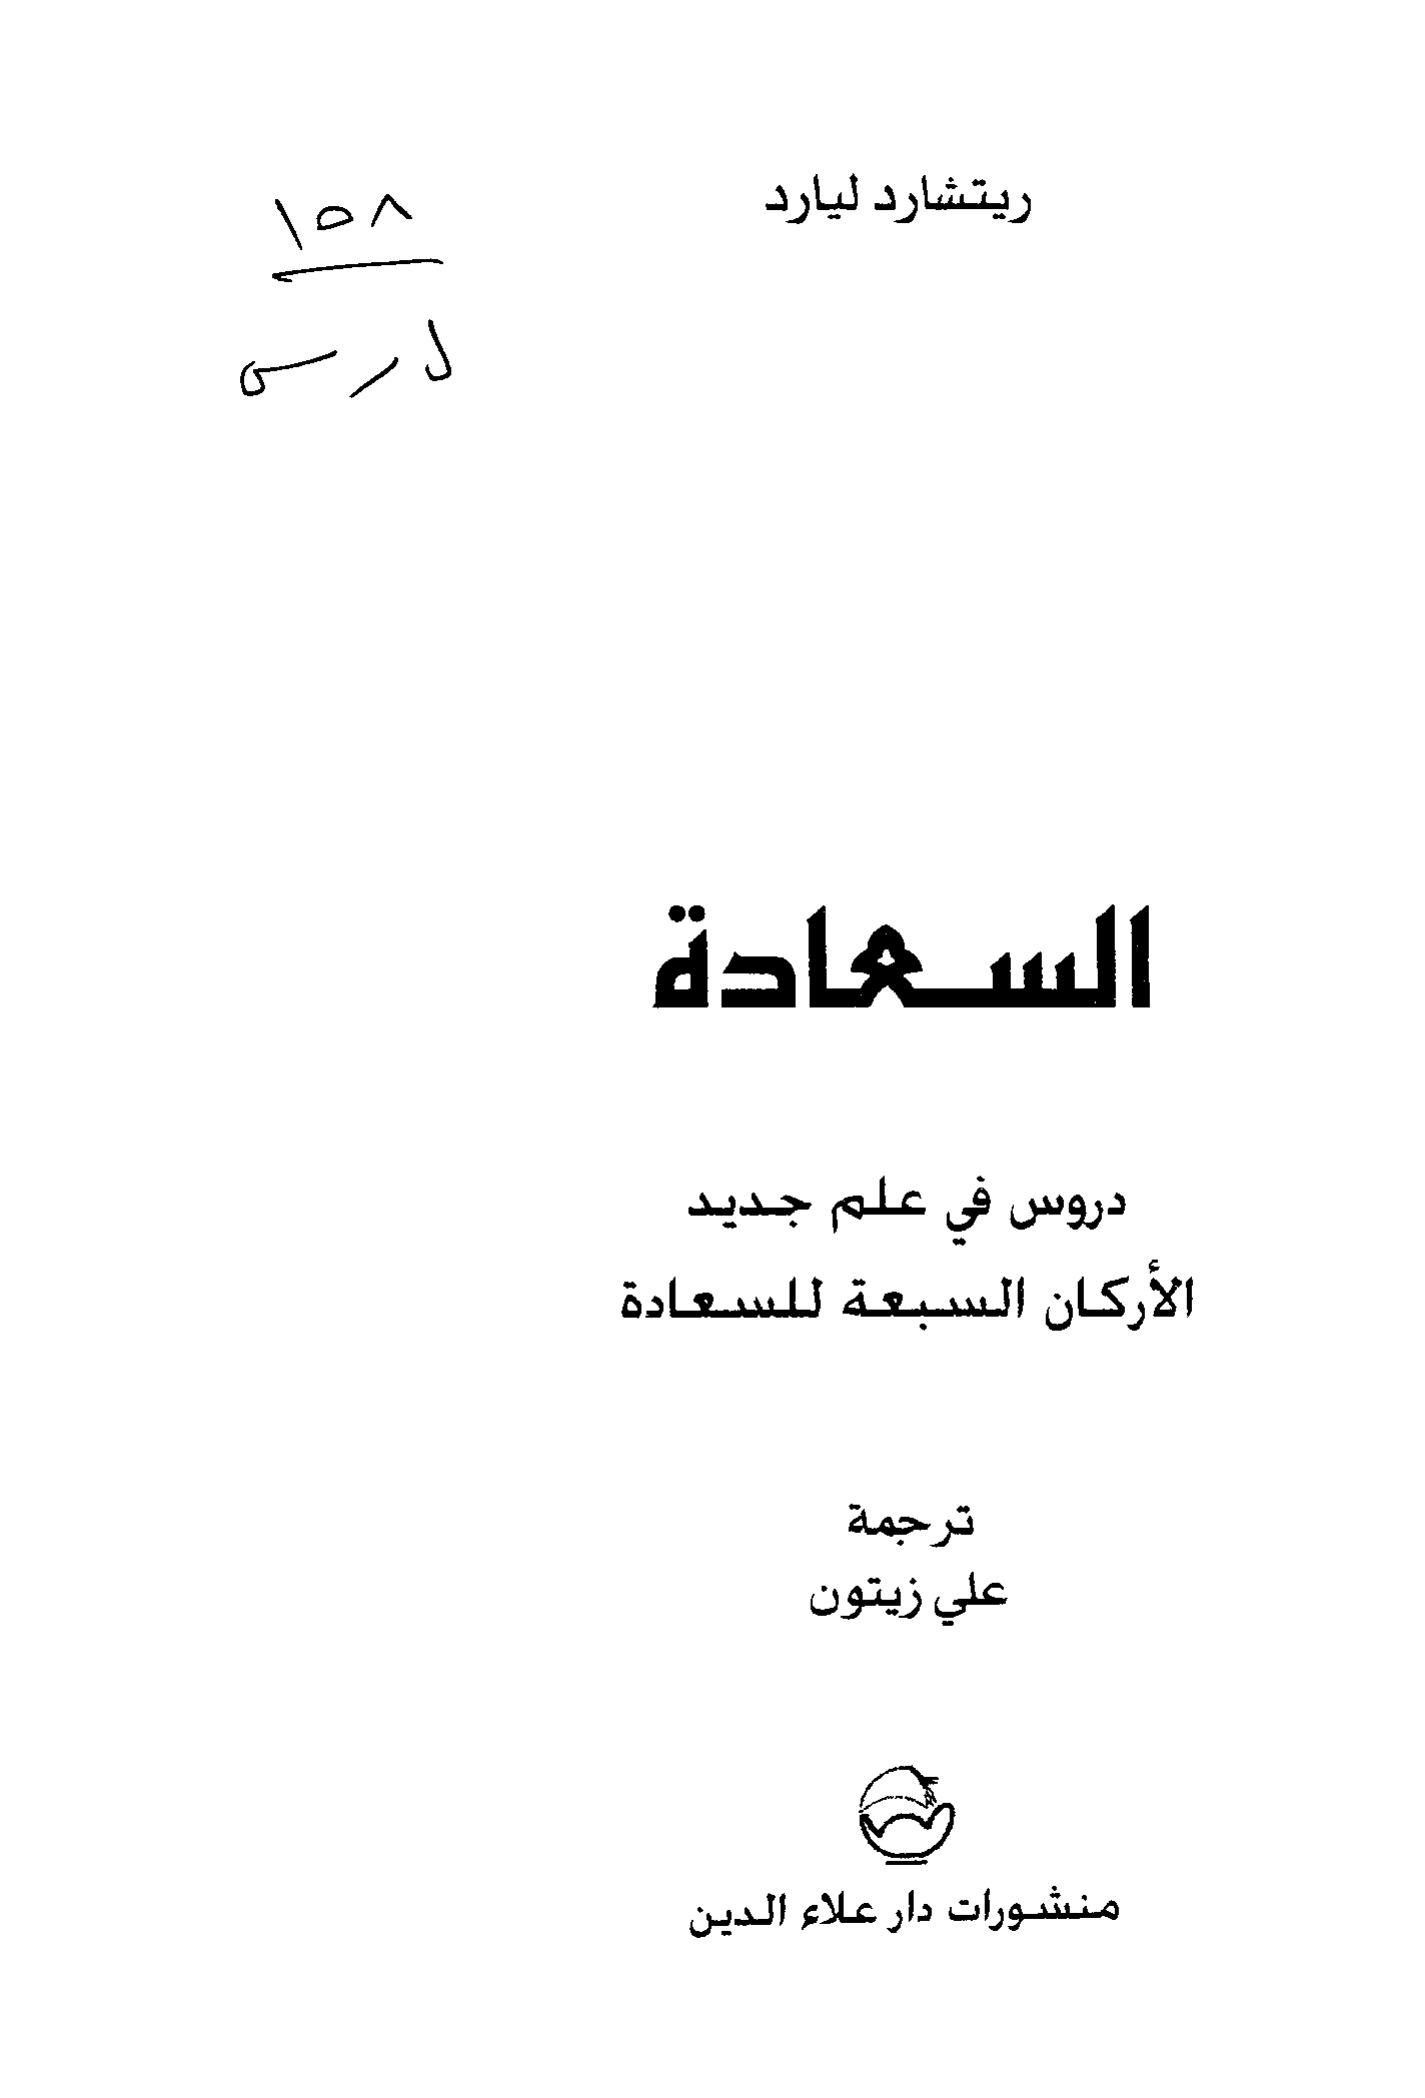 ريتشارد ليارد
١٥٨
ل ر س
السعادة
دروس في علم جديد
الأركان السبعة للسعادة
ترجمة
علي زيتون
منشورات دار علاء الدين